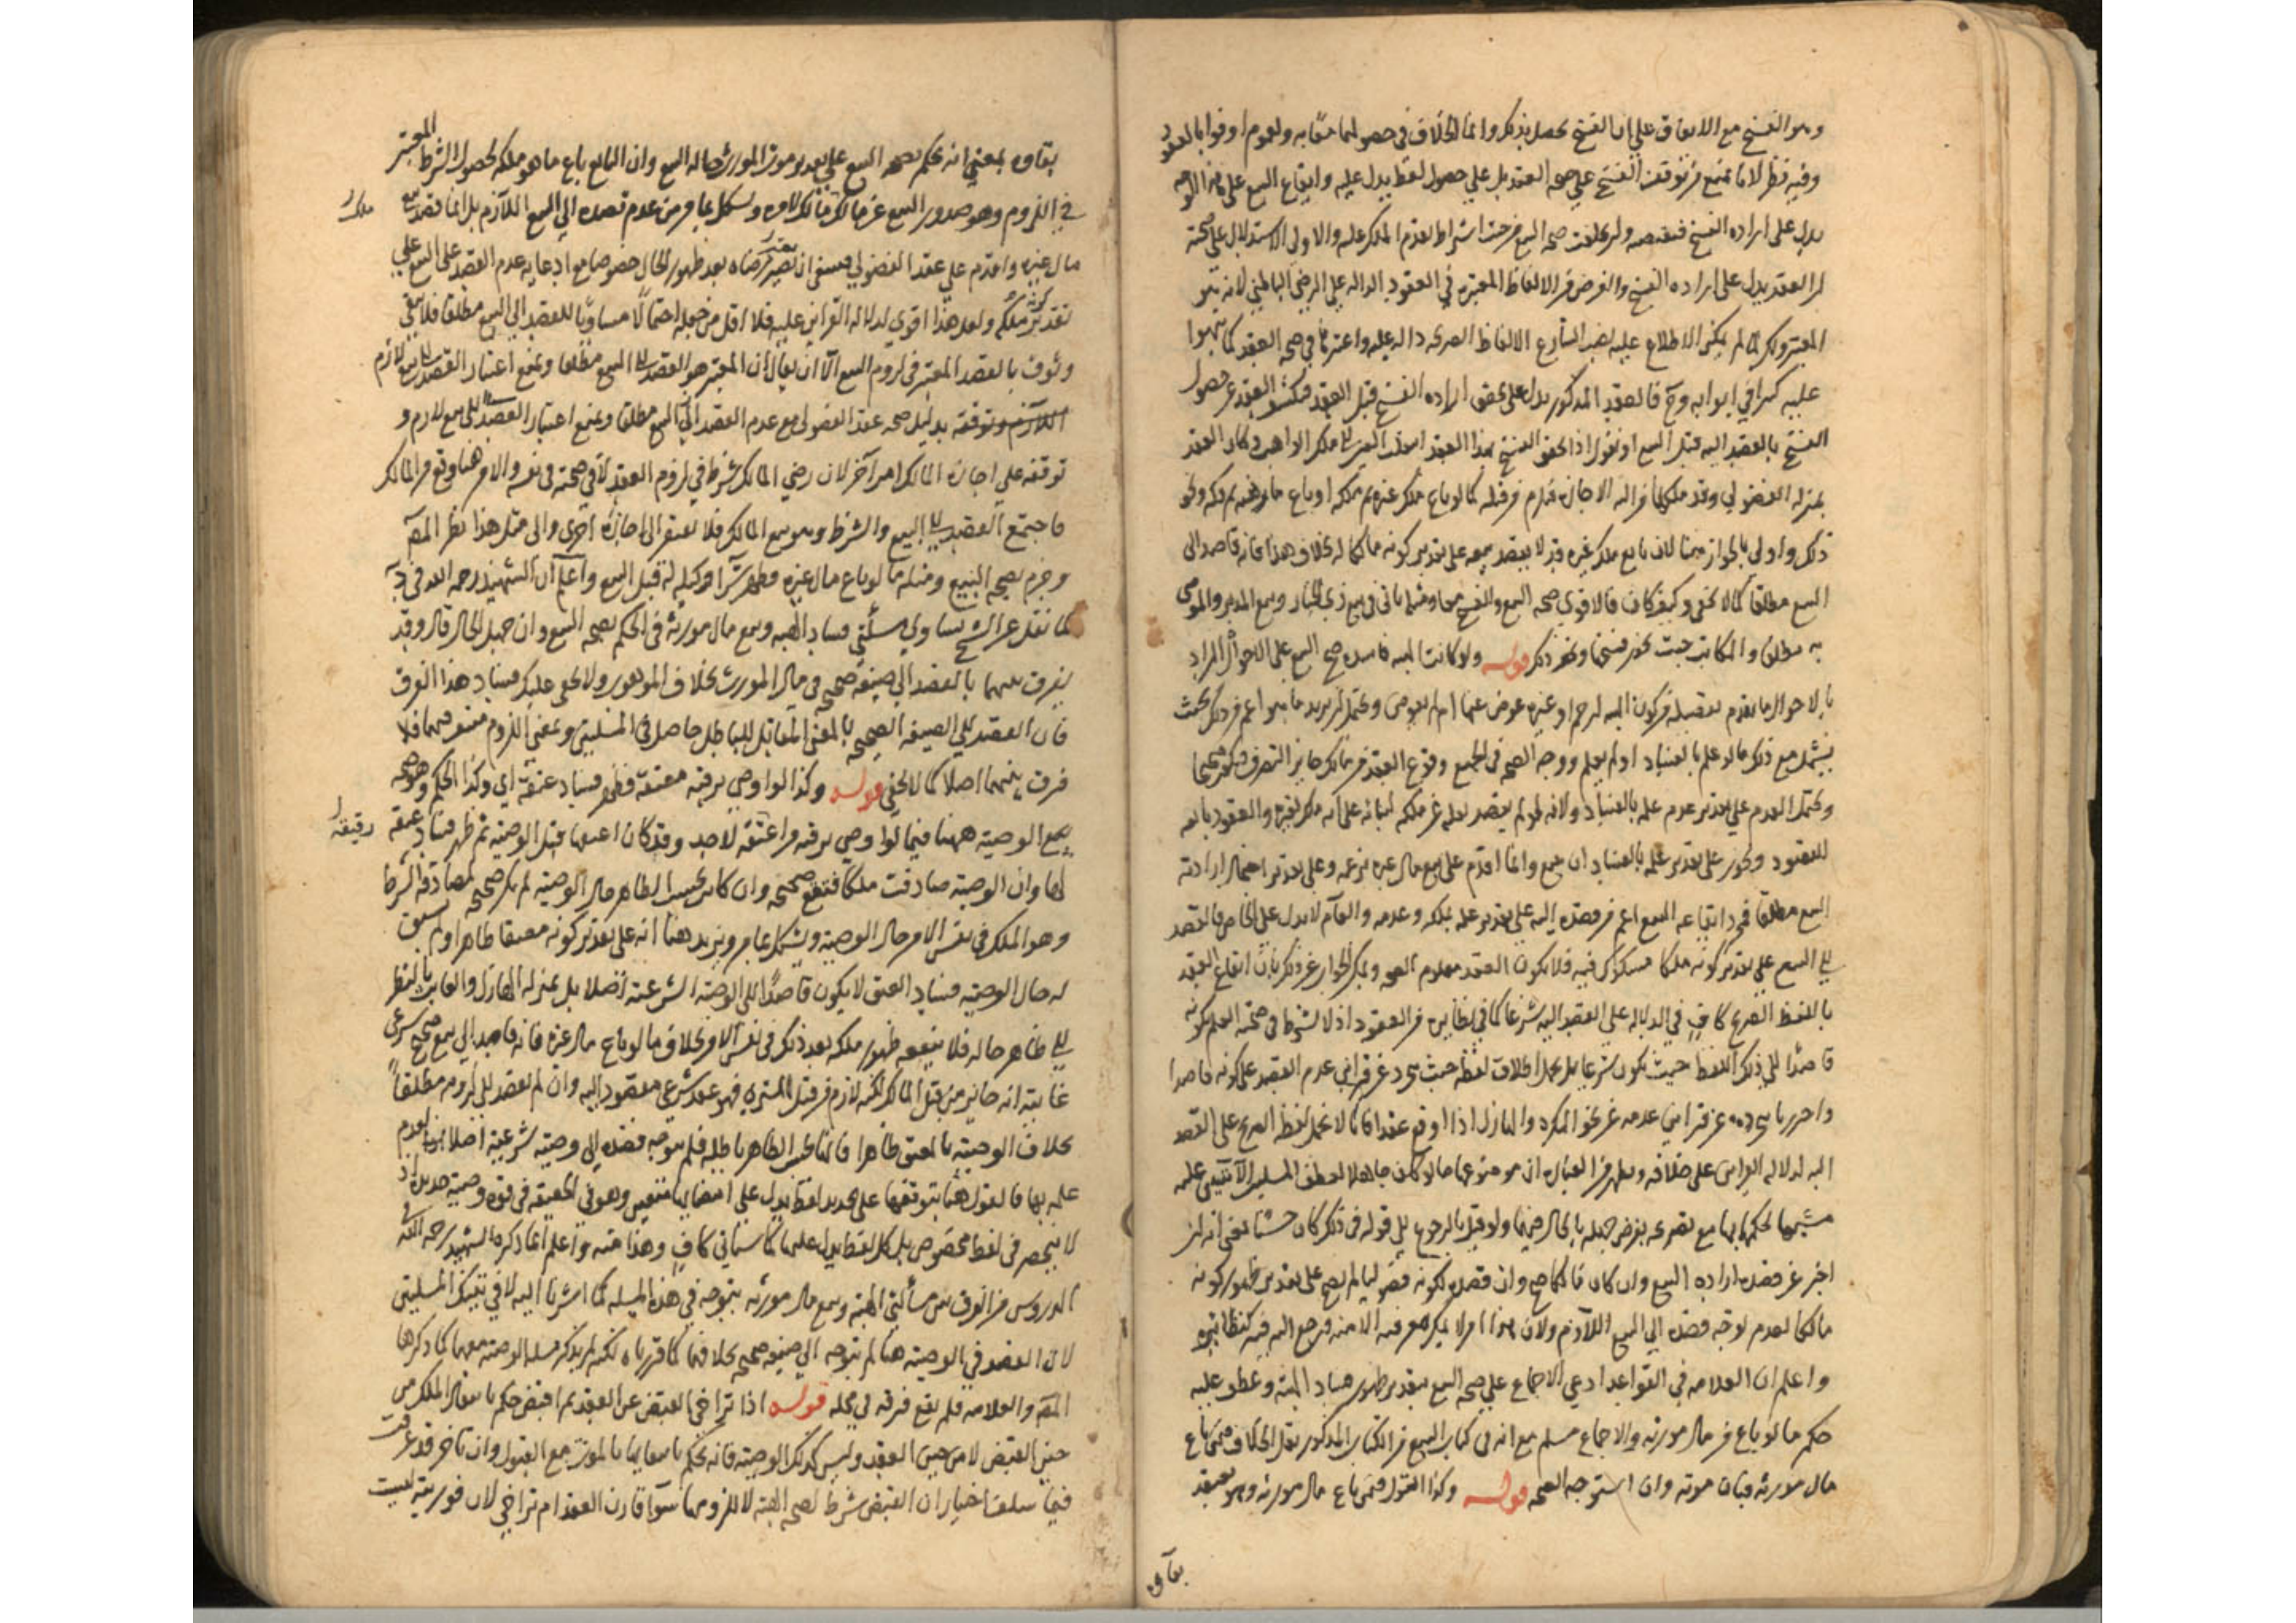 وهو الفسخ مع الاتفاق على ان الفسخ يحصل بذلك وانما الخلاف في حصولهما معًا به ولعموم اوفوا بالعقود
وفيه نظر لانا نمنع من توقف الفسخ على صحة العقد بل على حصول لفظ يدل عليه وايقاع البيع على هذا الوجه
يدل على ارادة الفسخ فيقتضيه ولو تخلفت صحة البيع من حيث اشتراط تقدم الملك عليه والاولى الاستدلال على صحته
بان العقد يدل على ارادة الفسخ والغرض من الالفاظ المعتبرة في العقود الدالة على الرضى الباطني لانه هو
المعتبر ولكن لما لم يمكن الاطلاع عليه نصب الشارع الالفاظ الصريحة دالة عليه واعتبرها في صحة العقد كما نبهوا
عليه كثيرا في ابوابه وح فالعقد المذكور يدل على تحقق ارادة الفسخ قبل العقد فيكشف العقد عن حصول
الفسخ بالقصد اليه قبل البيع او نقول اذا تحقق الفسخ بهذا العقد انتقلت العين الى ملك الواهب وكان العقد
بمنزلة الفضولي وقد ملكها من اليه الاجازة فلزم من قبله كما لو باع ملك غيره ثم ملكه او باع ما رهنه ثم فكه ونحو
ذلك واولى بالجواز هنا لان بايع ملك غيره قد لا يقصد بيعه على تقدير كونه مالكا له بخلاف هذا فانه قاصد الى
البيع مطلقا كما لا يخفى وكيف كان فالاقوى صحة البيع والفسخ معا ومثله يأتي في بيع ذي الخيار وبيع المدبر والموصى
به مطلقا والمكاتب حيث يجوز فسخها ونحو ذلك قوله ولو كانت الهبة فاسدة صح البيع على الاحوال المراد
بالاحوال ما تقدم تفصيله من كون الهبة لرحم او غيره عوض عنها ام لم يعوض ويحتمل ان يريد ما هو اعم من ذلك بحيث
يشمل مع ذلك ما لو علم بالفساد او لم يعلم ووجه الصحة في الجميع وقوع العقد من مالك جايز التصرف فيكون صحيحا
ويحتمل العدم على تقدير عدم علمه بالفساد ولانه لم يقصد نقله عن ملكه لبنائه على انه ملك لغيره والعقود تابعة
للقصود ويجوز على تقدير علمه بالفساد ان يبيع وانما اقدم على بيع مال غيره بزعمه وعلى تقدير احتمال ارادته
البيع مطلقا فمجرد ايقاعه البيع اعم من قصده اليه على تقدير علمه بملكه وعدمه والعام لا يدل على الخاص فالقصد
الى البيع على تقدير كونه ملكا مشكوك فيه فلا يكون العقد معلوم الصحة ويمكن الجواب عن ذلك بان ايقاع العقد
باللفظ الصريح كاف في الدلالة على القصد اليه شرعا كما في نظائره من العقود اذ لا يشترط في صحته العلم بكونه
قاصدًا الى ذلك اللفظ حيث يكون شرعيا بل يحمل اطلاق لفظه حيث تجرد عن قراين عدم القصد على كونه قاصدا
واحترزنا بتجرده عن قراين عدمه عن نحو المكره والهازل اذا اوقع عقدا فانا لا نحمل لفظه الصريح على القصد
اليه لدلالة القراين على خلافه
مشيرا لحكمها بها مع تصريحه بفرض جهله بالحال
اخبر عن قصده ارادة البيع وان كان مالكا صح وان قصده لكونه فضوليا لم يصح على تقدير ظهور كونه
مالكا لعدم توجه قصده الى البيع اللازم ولان هذا امر لا يمكن معرفته الا منه فرجع اليه فيه كنظايره
واعلم ان العلامة في القواعد ادعى الاجماع على صحة البيع بتقدير ظهور فساد الهبة وعطف عليه
حكم ما لو باع من مال مورثه والاجماع مسلم مع انه في كتاب البيع من الكتاب المذكور نقل الخلاف فيمن باع
مال مورثه فبان موته وان استوجه الصحة قوله وكذا القول فيمن باع مال مورثه وهو يعتقد
بقاؤه
بقاوه بمعنى انه يحكم بصحة البيع على تقدير موت المورث حالة البيع وان البايع باع ما هو ملكه لحصول الشرط المعتبر
في اللزوم وهو صدور البيع عن مالك ويشكل بما مر من عدم قصده الى البيع اللازم بل انما قصد بيع
مال غيره واقدم على عقد الفضولي فينبغي ان يعتبر رضاه بعد ظهور الحال خصوصا مع ادعايه عدم القصد على البيع على
تقدير كونه ملكه ولعل هذا اقوى لدلالة القراين عليه فلا اقل من جعله احتمالًا مساويًا للقصد الى البيع مطلقا فلا يبقى
وثوق بالقصد المعتبر في لزوم البيع الا ان يقال ان المعتبر هو القصد الى البيع مطلقا ويمنع اعتبار القصد الى بيع لازم
اللازم وتوقفه بدليل صحة عقد الفضولي مع عدم القصد الى البيع مطلقا ويمنع اعتبار القصد الى بيع لازم و
توقفه على اجازة المالك امر آخر لان رضي المالك شرط في لزوم العقد لا في صحته في نفسه والامر هنا وقع من المالك
فاجتمع القصد الى البيع والشرط وهو بيع المالك فلا يفتقر الى اجازة اخرى والى مثل هذا نظر المصنف
وجزم بصحة البيع ومثله ما لو باع مال غيره فظهر شرآء وكيله له قبل البيع واعلم ان الشهيد رحمه الله في د
لما نقل عن الشيخ تساوي مسألتي فساد الهبة وبيع مال مورثه في الحكم بصحة البيع وان جهل الحال قال وقد
يفرق بينهما بالقصد الى صيغة صحيحة في مال المورث بخلاف الموهوب ولا يخفى عليك فساد هذا الفرق
فان القصد الى الصيغة الصحيحة بالمعنى المقابل للباطل حاصل في المسلتين وبمعنى اللزوم منتف فيهما فلا
فرق بينهما اصلا كما لا يخفى قوله وكذا لو اوصى برقبة معتقة وظهر فساد عتقه اي وكذا الحكم وهو صحة
بيع الوصية ههنا فيما لو اوصى برقبة من اعتقه لاحد وقد كان اعتقها قبل الوصية ثم ظهر فساد عتقه
لها وان الوصية صادفت ملكا فتقع صحيحة وان كان بحسب الظاهر حال الوصية لم يكن صحيحة لمصادفة الشرط
وهو الملك في نفس الامر حال الوصية ويشكل بما مر ويزيد هنا انه على تقدير كونه معتقا ظاهرا ولم يسبق
له حال الوصية فساد العتق لا يكون قاصدًا الى الوصية الشرعية اصلا بل بمنزلة الهازل والعابث بالنظر
الى ظاهر حاله فلا ينفعه ظهور ملكه بعد ذلك في نفس الامر بخلاف ما لو باع مال غيره فانه قاصد الى بيع صحيح شرعي
غايته انه جايز من قبل المالك لكنه لازم من قبل المشتري فهو عقد شرعي مقصود اليه وان لم يقصد الى لزومه مطلقاً
بخلاف الوصية بالمعتق ظاهرا فانها بحسب الظاهر باطلة فلم يتوجه قصده الى وصية شرعية اصلا لعدم
علمه بها فالقول هنا بتوقفها على تجديد لفظ يدل على امضايها متعين وهو في الحقيقة في قوة وصية جديدة اذ
لا ينحصر في لفظ مخصوص بل كل لفظ يدل عليها كما سيأتي كاف وهذا منه واعلم ان ما ذكره الشهيد رحمه الله في
الدروس من الفرق بين مسألتي الهبة وبيع مال مورثه يتوجه في هذه المسلة كما اشرنا اليه لا في تينك المسلتين
لان القصد في الوصية هنا لم يتوجه الى صيغة صحيحة بخلافهما كما قررناه لكنه لم يذكر مسلة الوصية معهما كما ذكرها
المصنف والعلامة فلم يقع فرقه في محله قوله اذا تراخى القبض عن العقد ثم اقبض حكم بانتقال الملك من
حين القبض لا من حين العقد وليس كذلك الوصية فانه يحكم بانتقالها بالموت مع القبول وان تاخر قد عرفت
فيما سلف اختيار ان القبض شرط لصحة الهبة لا للزومها سوآء قارن العقد ام تراخى لان فوريته ليست